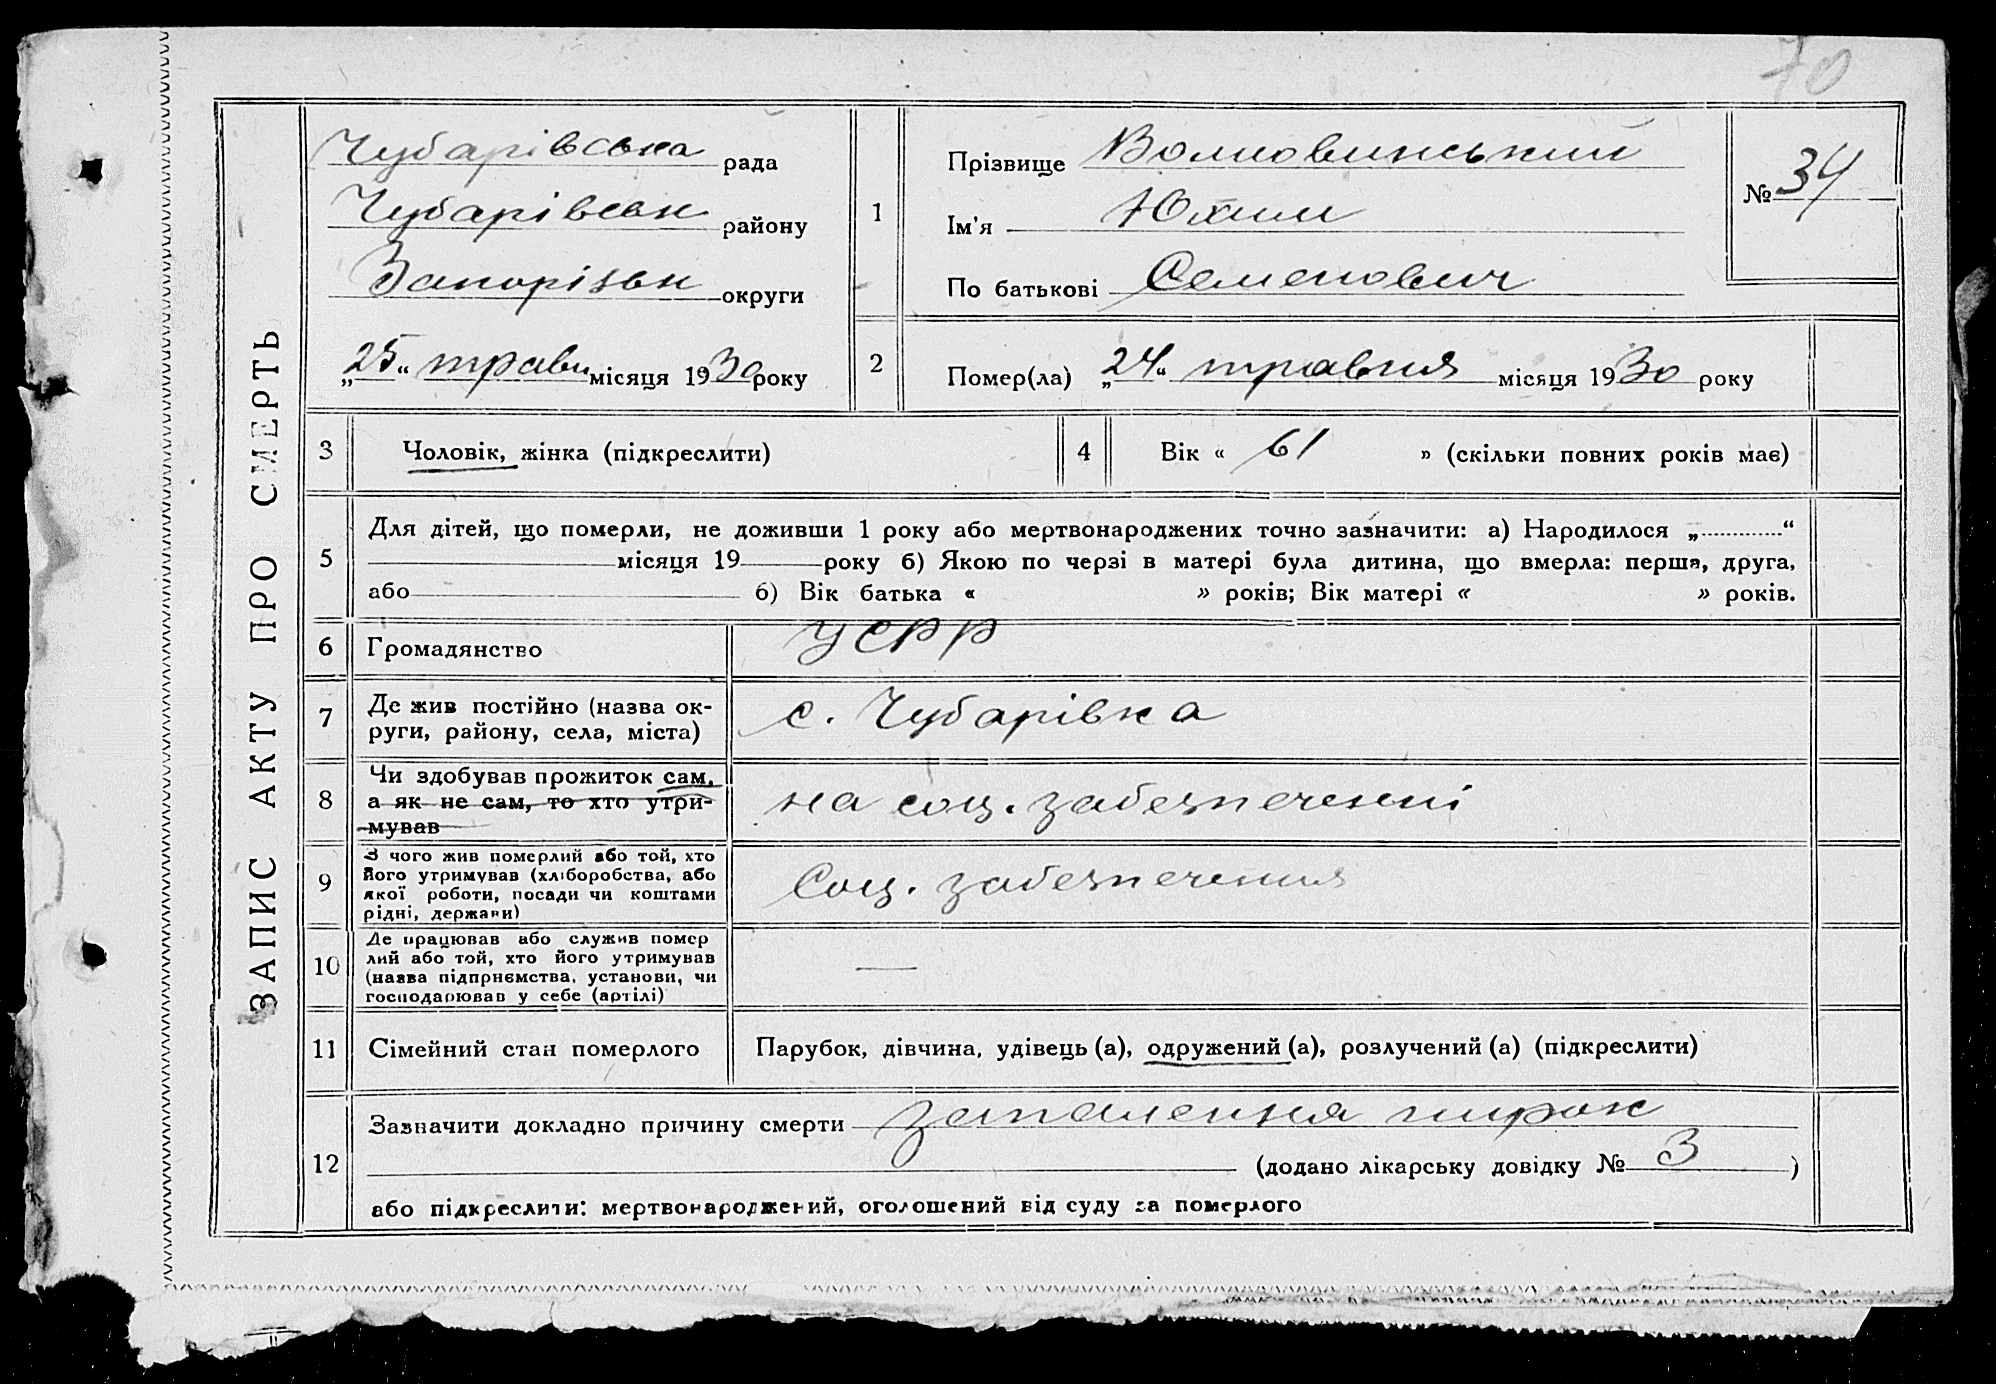 70
ЗАПИС АКТУ ПРО СМЕРТЬ
Чубарівська рада
Чубарівськ району
Запорізьк округи
„25“ травн місяця 1930 року
1
Прізвище Волновинський
Ім'я Юхим
По батькові Семенович
№ 34
2
Помер(ла) „24“ травня місяця 1930 року
3
Чоловік, жінка (підкреслити)
4
Вік « 61 » (скільки повних років має)
5
Для дітей, що померли, не доживши 1 року або мертвонароджених точно зазначити: а) Народилося „ “
місяця 19 року б) Якою по черзі в матері була дитина, що вмерла: перша, друга,
або б) Вік батька « » років; Вік матері « » років.
6
Громадянство
УСРР
7
Де жив постійно (назва ок-
руги, району, села, міста)
с. Чубарівка
8
Чи здобував прожиток сам,
а як не сам, то хто утри-
мував
на соц. забезпеченні
9
З чого жив померлий або той, хто
його утримував (хліборобства, або
якої роботи, посади чи коштами
рідні, держави)
Соц. забезпечення
10
Де працював або служив помер
лий або той, хто його утримував
(назва підприємства, установи, чи
господарював у себе (артілі)
—
11
Сімейний стан померлого
Парубок, дівчина, удівець (а), одружений (а), розлучений (а) (підкреслити)
12
Зазначити докладно причину смерти запалення нирок
(додано лікарську довідку № 3 )
або підкреслити: мертвонароджений, оголошений від суду за померлого